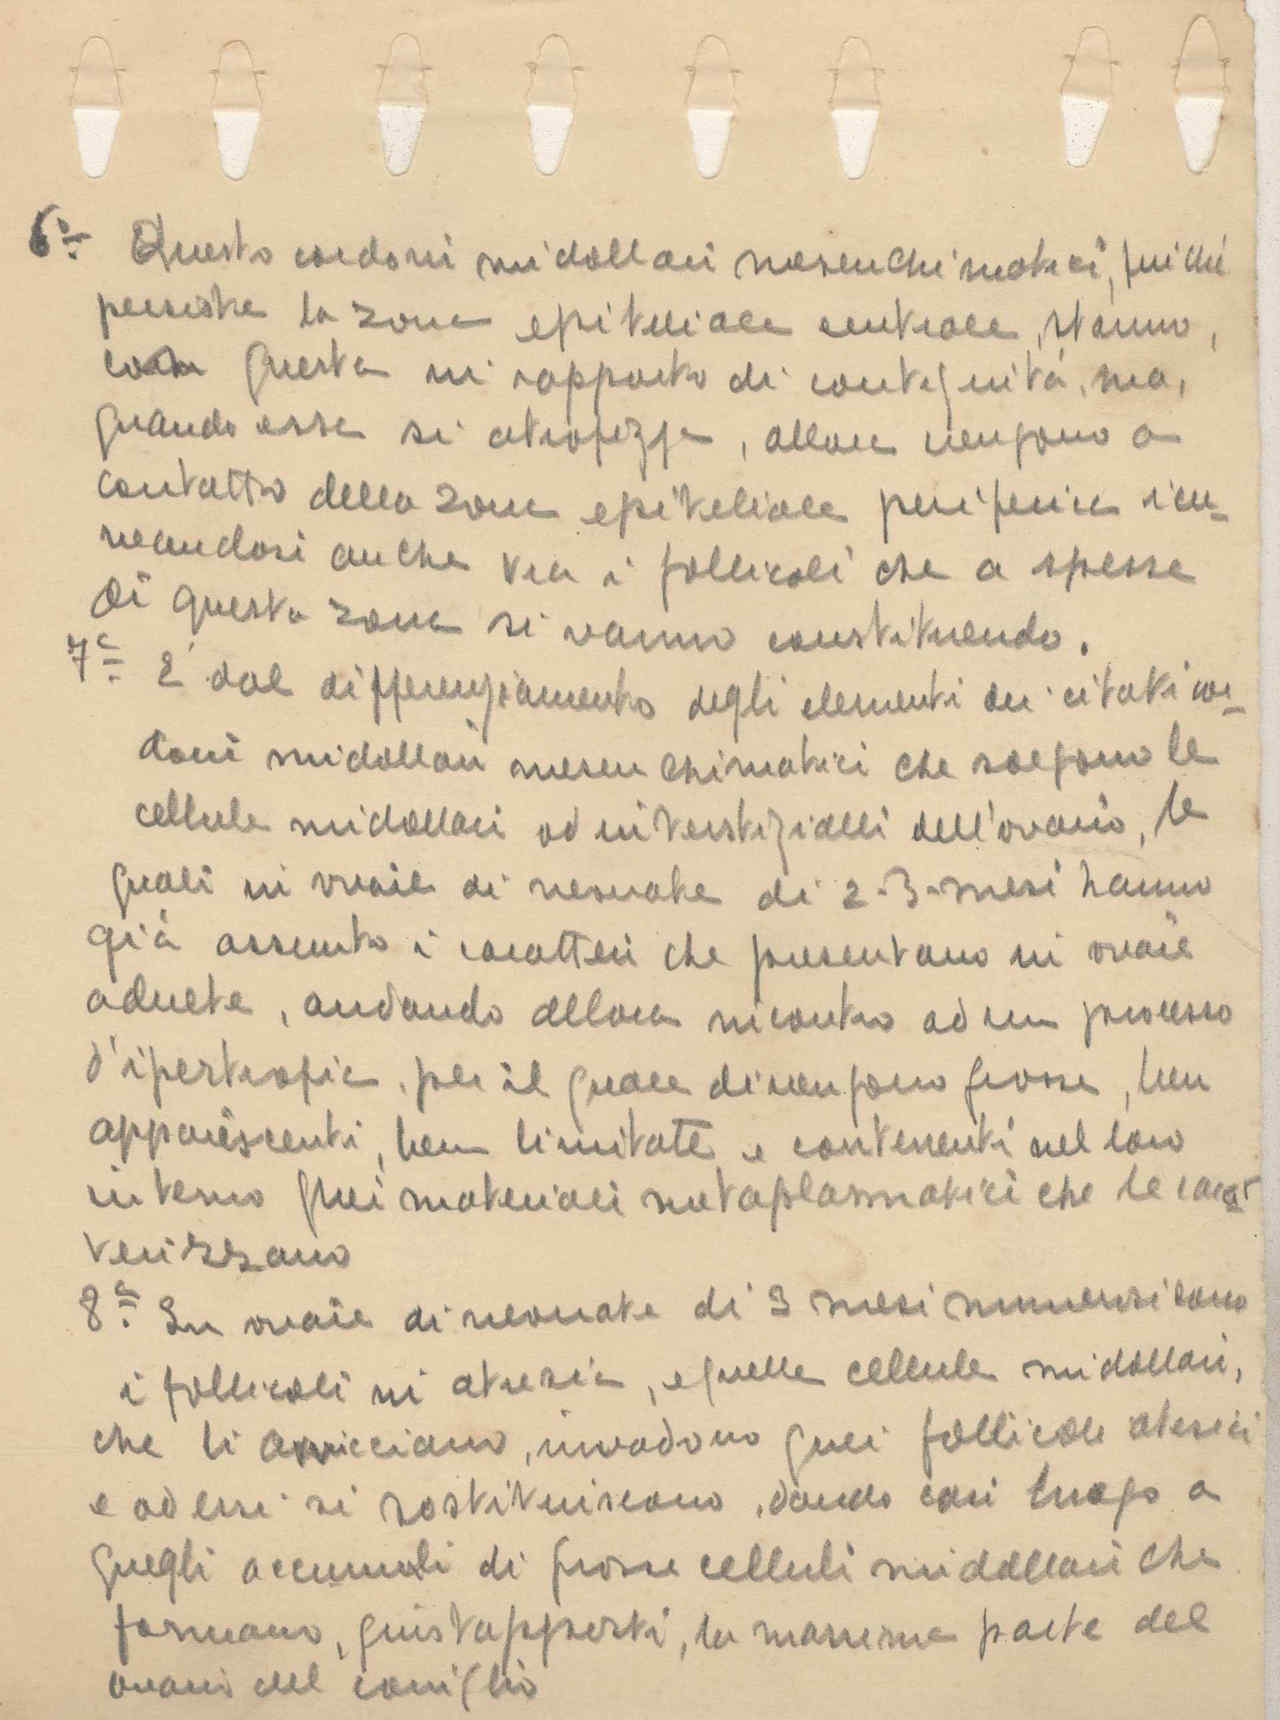 6ª Questo cordoni midollari mesenchimatici, finché
persiste la zona epiteliale centrale, stanno,
con questa in rapporto di contiguità, ma,
quando essa si atrofizza, allora vengono a
contatto della zona epiteliale periferica
neandosi anche tra i follicoli che a spesse
di questa zona si vanno constituendo.
7ª E' dal differenziamento degli elementi dei citati cor-
doni midollari mesenchimatici che sorgono le
cellule midollari od interstiziali dell'ovaio, le
quali in ovaie di neonate di 2-3-mesi hanno
già assunto i caratteri che presentano in ovaie
adulte, andando allora incontro ad un processo
d'ipertrofia, per il quale divengono grosse, ben
appariscenti, ben limitate e contenenti nel loro
interno quei materiali metaplasmatici che le carat
terizzano
8ª In ovaie di neonate di 3 mesi numerosi sono
i follicoli in atresia, e quelle cellule midollari,
che li avvicciano, invadono quei follicoli atresici
e ad essi si sostituiscono, dando così luogo a
quegli accumuli di grosse celluli midollari che
formano, giustapposti, la massima parte del
ovario del coniglio